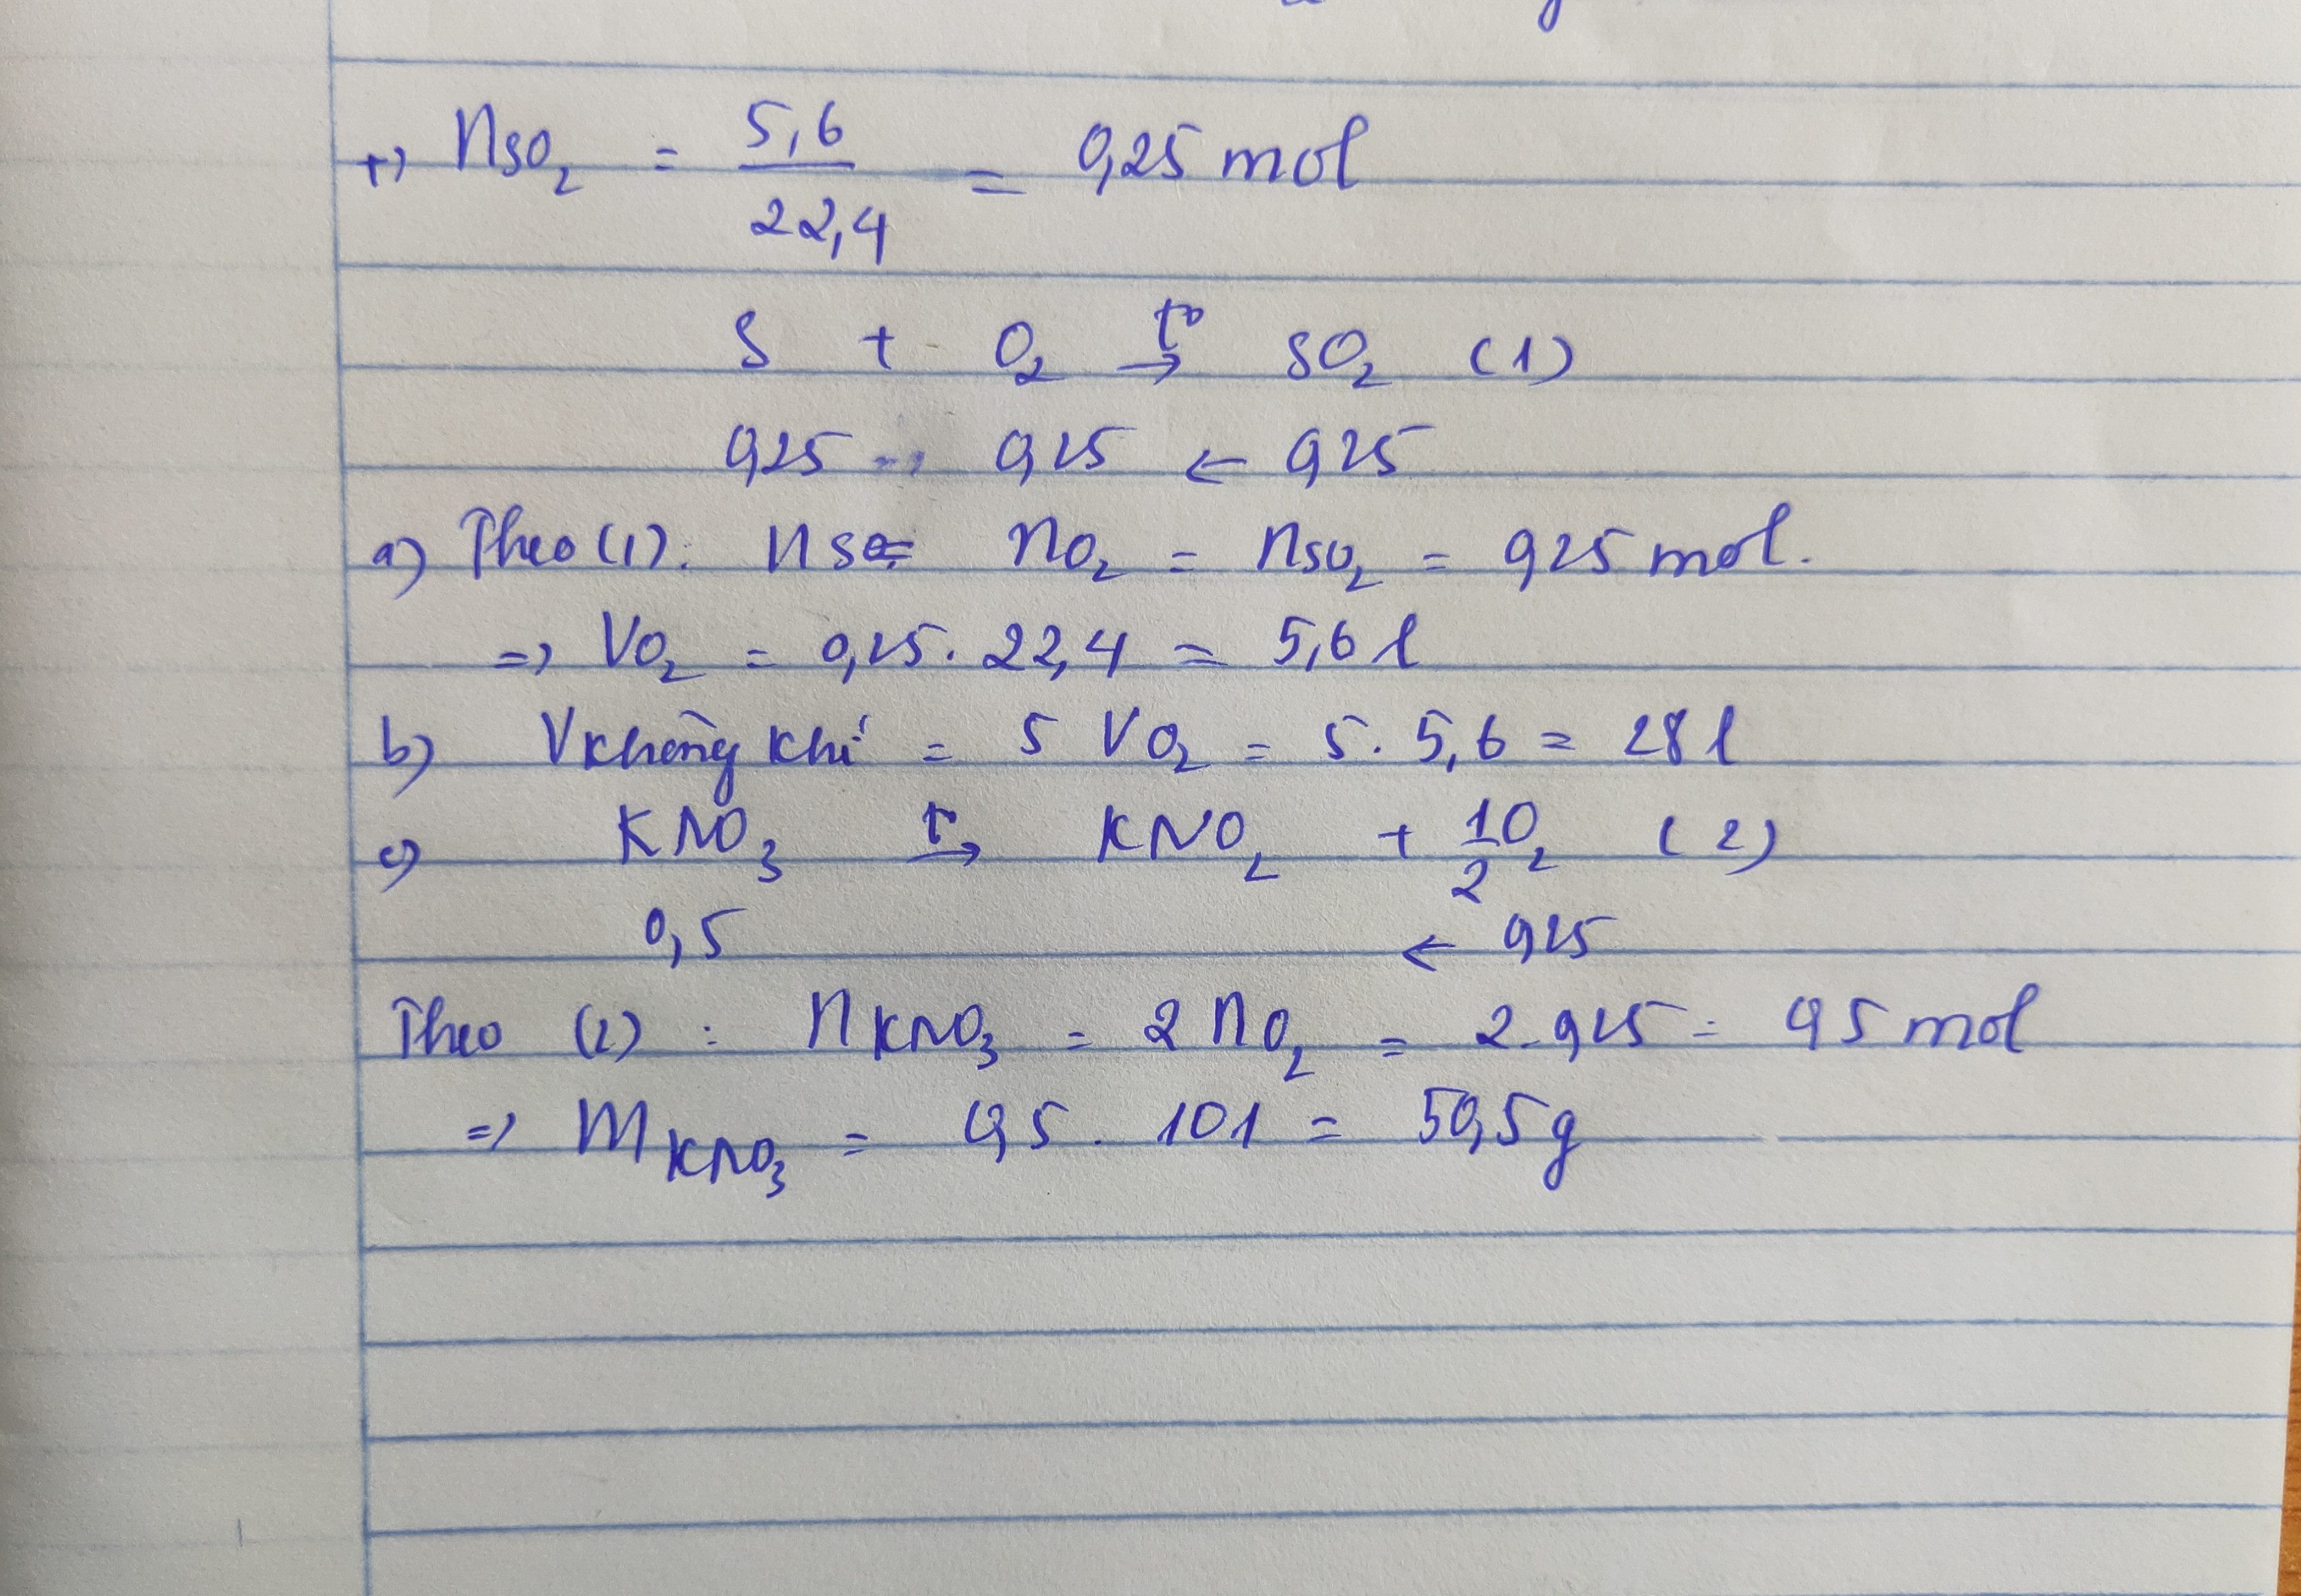 +) nSO₂ = 5,6 / 22,4 = 0,25 mol
S + O₂ →(t°) SO₂ (1)
0,25 0,25 ← 0,25
a) Theo (1): nS = nO₂ = nSO₂ = 0,25 mol.
=> VO₂ = 0,25 . 22,4 = 5,6 l
b) Vkhông khí = 5 VO₂ = 5 . 5,6 = 28 l
c) KNO₃ →(t°) KNO₂ + 1/2 O₂ (2)
0,5 ← 0,25
Theo (2) : nKNO₃ = 2 nO₂ = 2 . 0,25 = 0,5 mol
=> mKNO₃ = 0,5 . 101 = 50,5 g